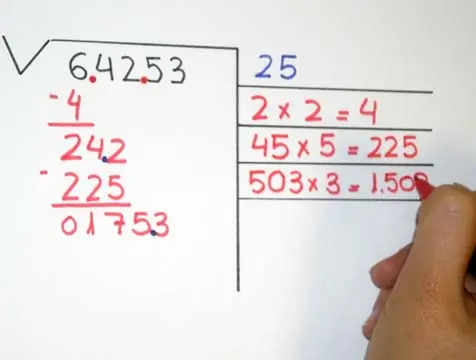 √6.42.53 25
-4 2 × 2 = 4
242 45 × 5 = 225
-225 503 × 3 = 1.50
01753